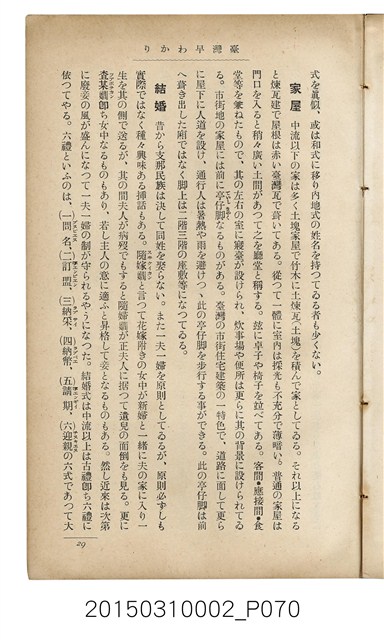 臺灣早わかり
式を眞似、或は和式に移り内地式の姓名を持つてゐる者も少くない。
家屋 中流以下の家は多く土塊家屋で竹木に土煉瓦(土塊)を積んで家としてゐる。それ以上になる
と煉瓦建で屋根は赤い臺灣瓦で葺いてある。從つて一體に室内は採光も不充分で薄暗い。普通の家屋は
門口を入ると稍々廣い土間があつて之を廳堂と稱する。玆に卓子や椅子を竝べてある。客間・應接間・食
堂等を兼ねたもので、其の左右の室に寢臺が設けられ、炊事場や便所は更らに其の背景に設けられてゐ
る。市街地の家屋には前に亭仔脚なるものがある。臺灣の市街住宅建築の一特色で、道路に面して更ら
に屋下に人道を設け、通行人は暑熱や雨を避けつゝ此の亭仔脚を步行する事ができる。此の亭仔脚は前
へ葺き出した廂ではなく脚上は二階三階の座敷等になつてゐる。
結婚 昔から支那民族は決して同姓を娶らない。また一夫一婦を原則としてゐるが、原則必ずしも
實際ではなく種々興味ある揷話もある。隨嫁𡢃と言つて花嫁附きの女中が新婦と一緖に夫の家に入り一
生を其の側で送るが、其の間夫人が病歿でもすると隨嫁𡢃が正夫人に据つて遺兒の面倒をも見る。更に
査某𡢃卽ち女中なるものもあり、若し主人の意に適ふと昇格して妾となるものもある。然し近來は次第
に廢妾の風が盛んになつて一夫一婦の制が守られるやうになつた。結婚式は中流以上は古禮卽ち六禮に
依つてやる。六禮といふのは、(一)問名、(二)訂盟、(三)納采、(四)納幣、(五)請期、(六)迎親の六式であつて大
29
20150310002_P070